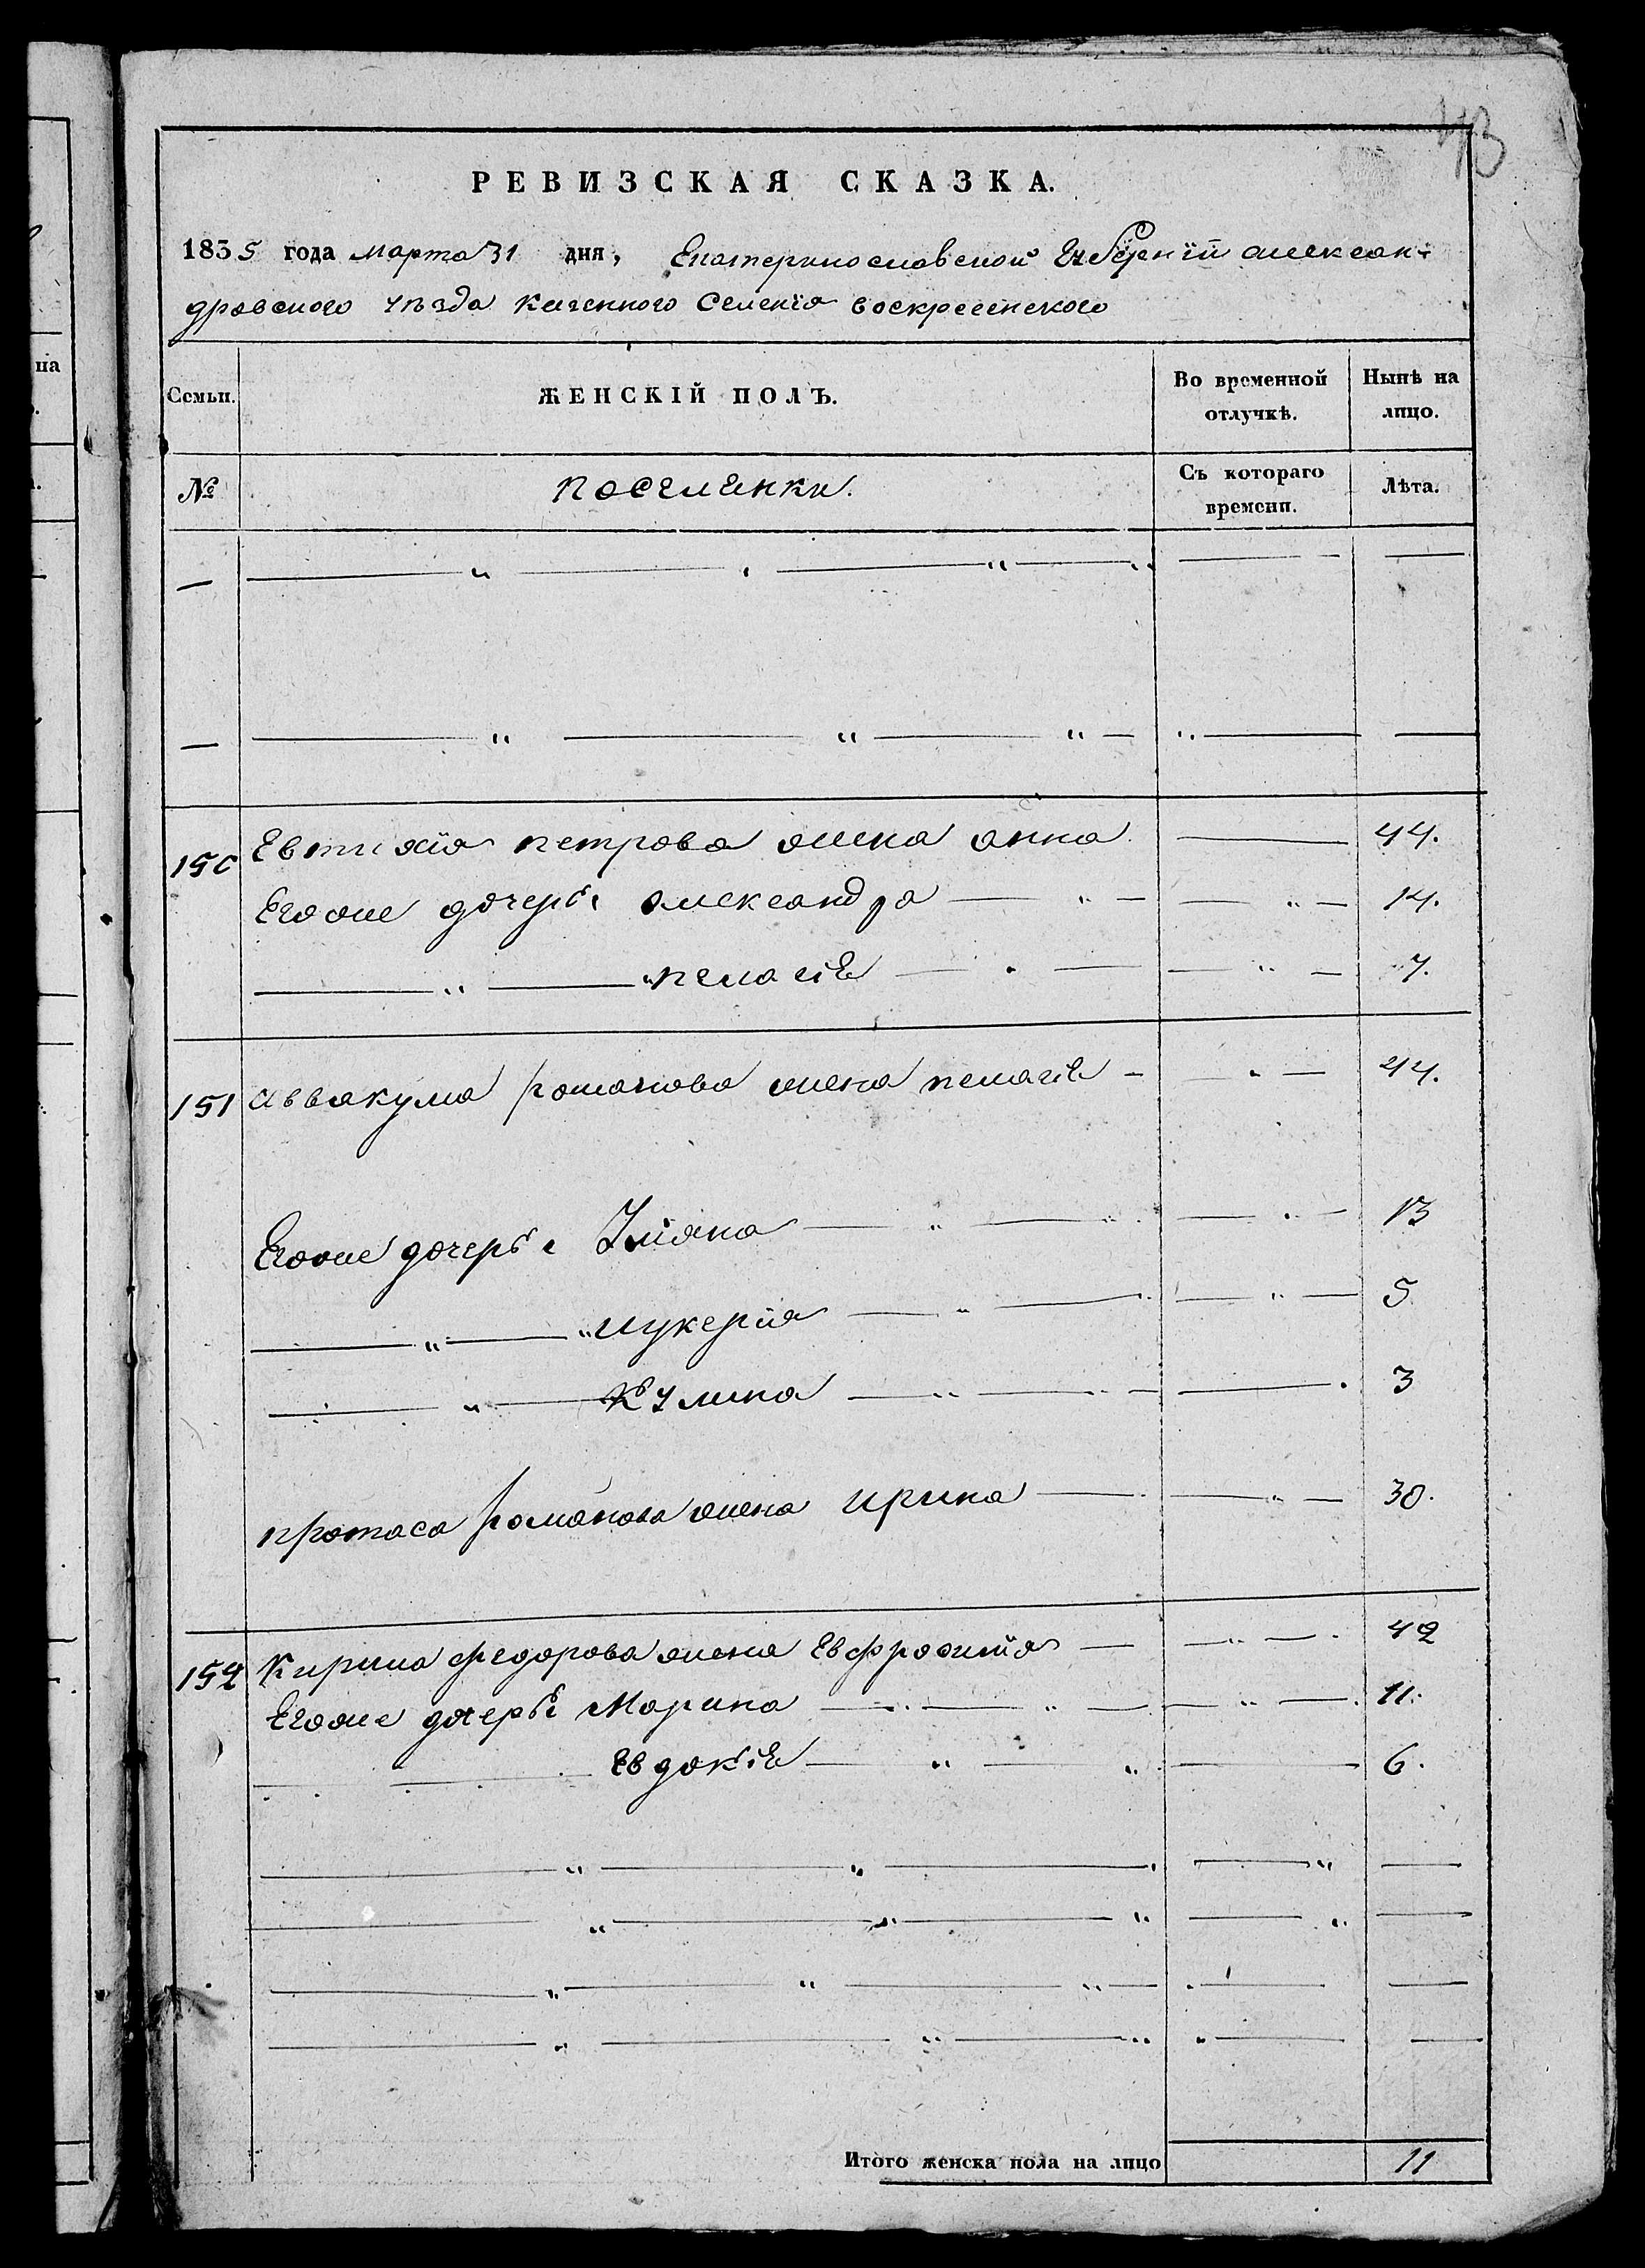 43
РЕВИЗСКАЯ СКАЗКА.
1835 года марта 31 дня, Екатеринославской Губернїи алексан-
дровского уѣзда казенного Селенїя воскресенского
на
Семьи. ЖЕНСКІЙ ПОЛЪ. Во временной отлучкѣ. Нынѣ на лицо.
№ поселянки. Съ котораго времени. Лѣта.
150 Евтихїя петрова жена анна 44.
Егоже дочери александра 14.
" пелагiя 7.
151 аввакума романова жена пелагiя 44.
Егоже дочери Ульяна 13
" лукерїя 5
" Кулина 3
протаса романова жена ирина 30.
152 Кирила федорова жена Евфросинїя 42
Егоже дочери Марина 11.
Евдокiя 6.
Итого женска пола на лицо 11